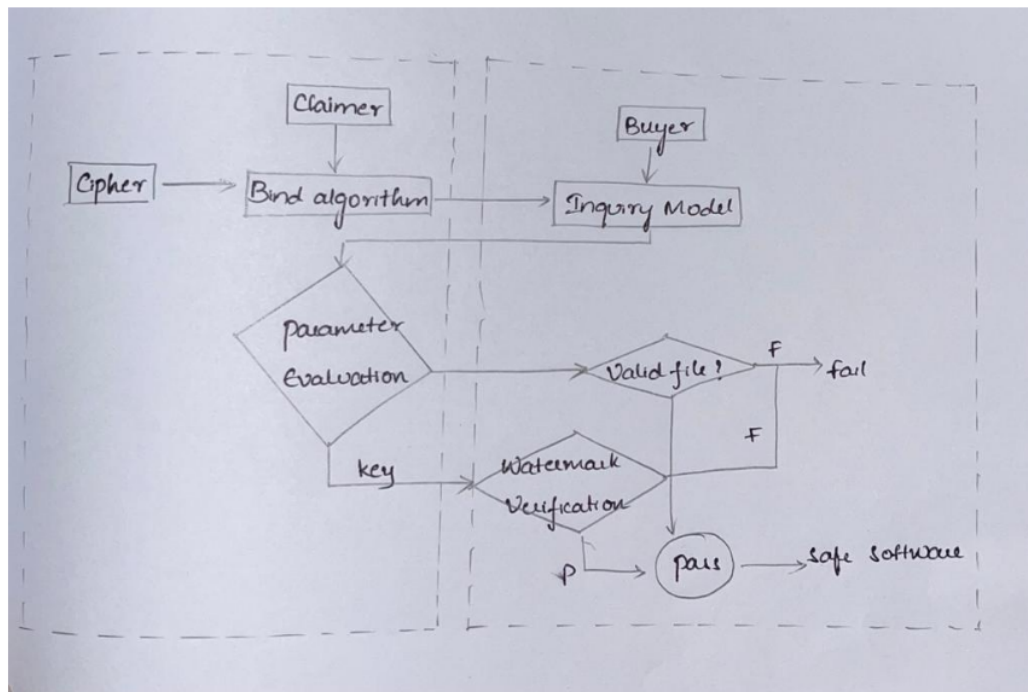 Claimer
Buyer
Cipher
Bind algorithm
Inquiry Model
Parameter
Evaluation
Valid file?
F
fail
F
key
Watermark
Verification
P
pass
safe software